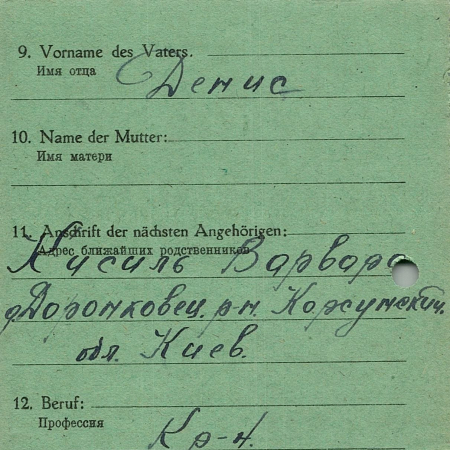 9. Vorname des Vaters.
Имя отца
Денис
10. Name der Mutter:
Имя матери
11. Anschrift der nächsten Angehörigen:
Адрес ближайших родственников
Кисиль Варвара
д. Доронковец. р-н. Корсунский.
обл. Киев.
12. Beruf:
Профессия
Кр-н.